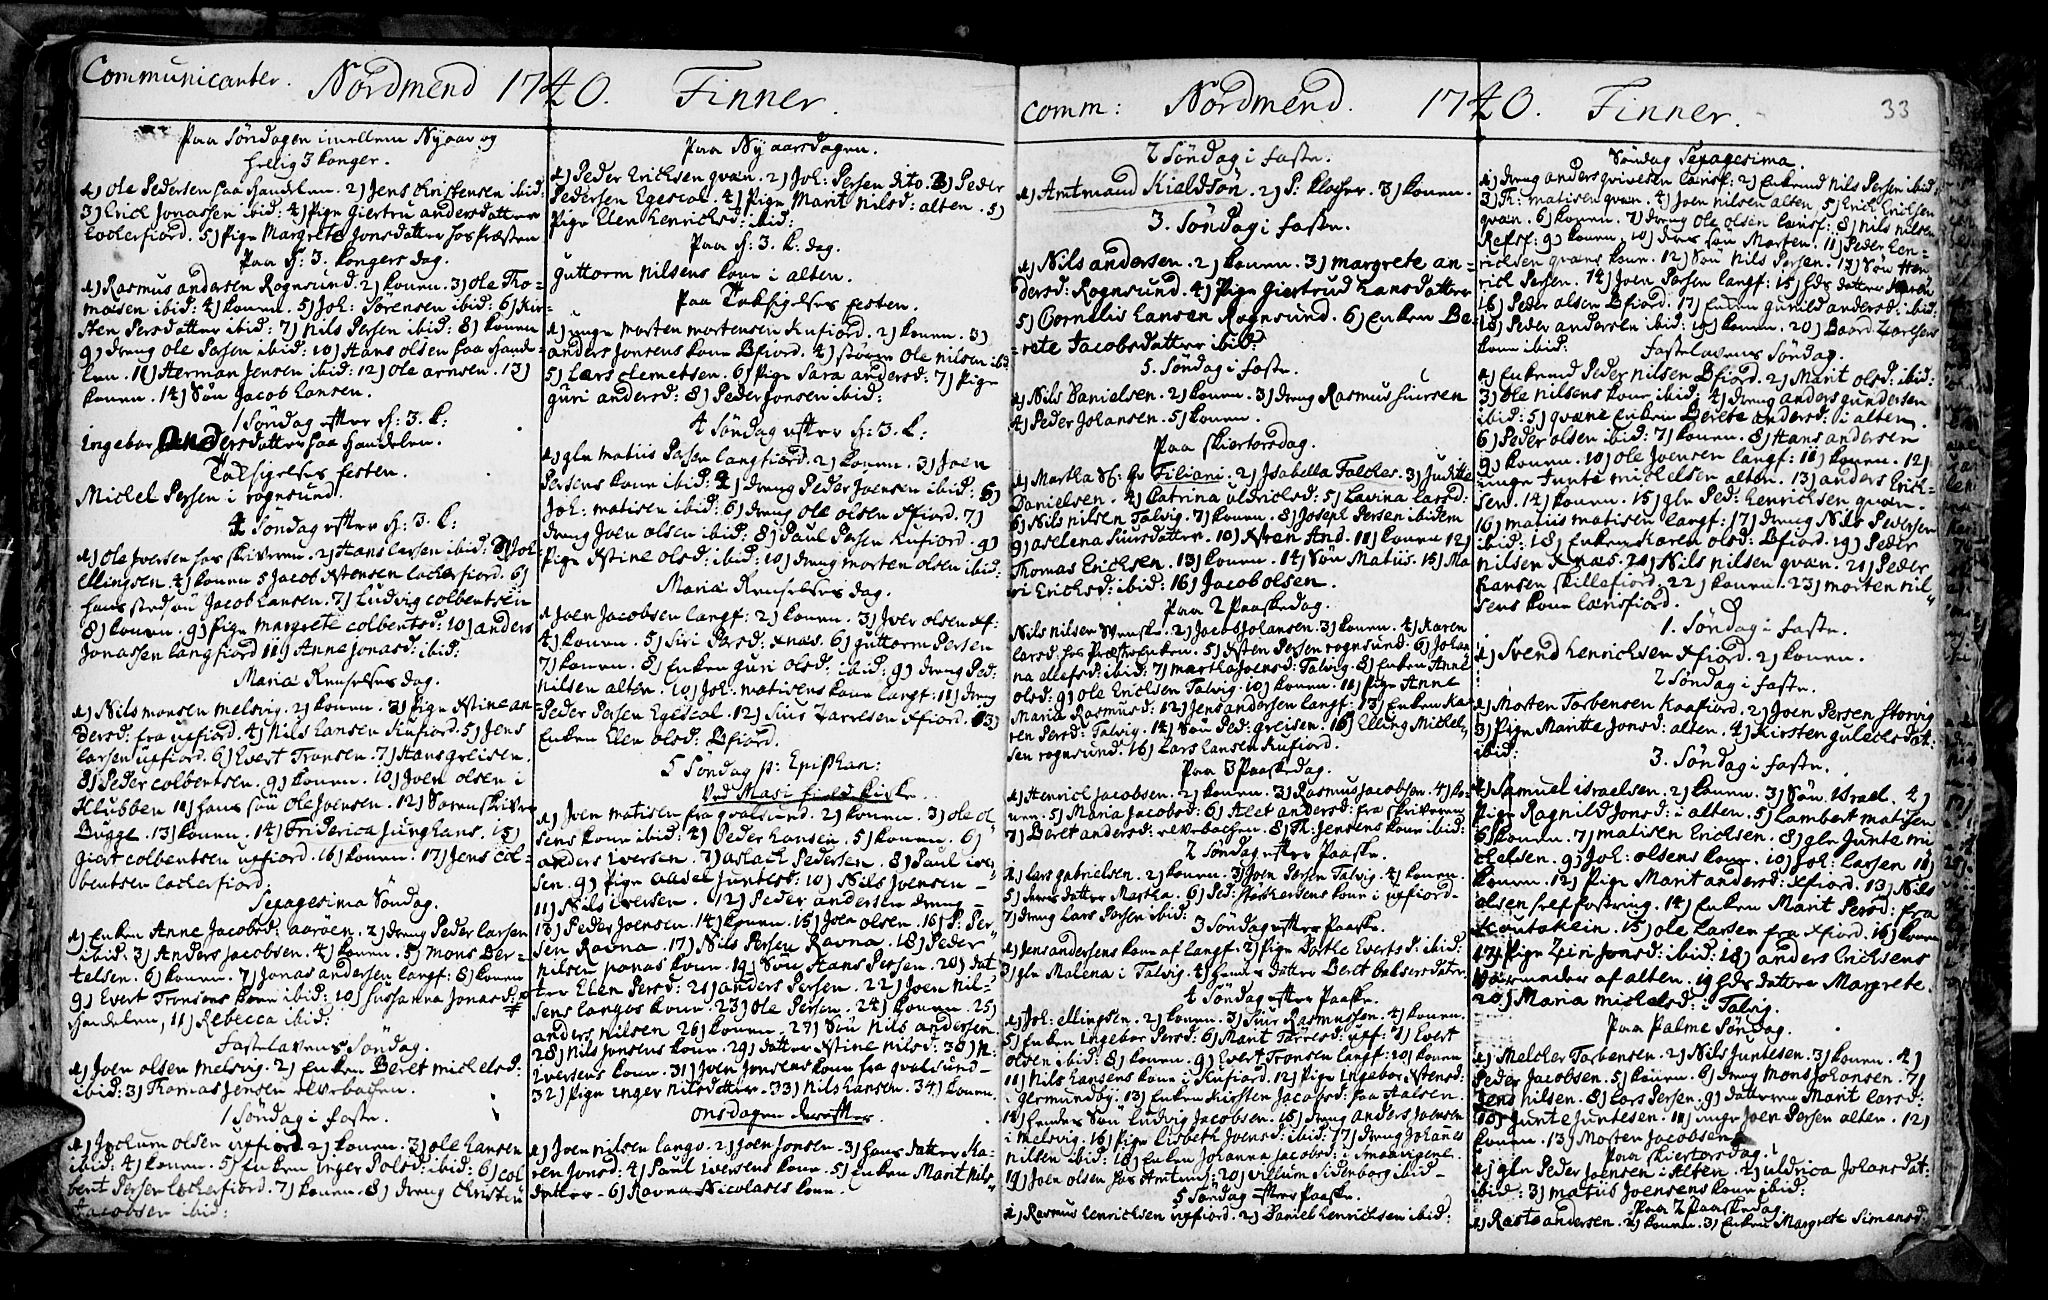 Communicanter. Nordmend 1740. Finner.
Paa Söndagen imellem Nyaar og
hellig 3 konger.
1) Ole Pedersen paa Handelen. 2) Jens Christensen ibid:
3) Erick Jonassen ibid: 4) Pige Giertru andersdatter
Lockerfiord. 5) Pige Margrete Jonsdatter hos Præsten
Paa H: 3. kongers dag.
1) Rasmus andersen Rognsund. 2) konen. 3) Ole Tho-
masen ibid: 4) konen. 5) Joh: Sörensen ibid: 6) Kir-
sten Persdatter ibid: 7) Nils Persen ibid: 8) konen
9) dreng Ole Persen ibid: 10) Hans olsen paa Hand-
len. 11) Herman Jensen ibid: 12) Ole arnsen. 13)
konen. 14) Sön Jacob Hansen.
1 Söndag efter H: 3. k:
Ingebor Andersdatter paa Handelen.
Taksigelses festen.
Michel Persen i rognsund.
4 Söndag efter H: 3. k:
1) Ole Iversen hos skriveren. 2) Hans Larsen ibid: 3) Joh:
Ellingsen. 4) konen 5 Jacob Xstensen Lockerfiord. 6)
hans stedsön Jacob Hansen. 7) Ludvig Colbentsen
8) konen. 9) Pige Margrete Colbentsd: 10) anders
Jonassen langfiord 11) Anne Jonasd: ibid:
Mariæ Renselses dag.
1) Nils monsen melsvig. 2) konen. 3) Pige Xstine an-
dersd: fra upfiord. 4) Nils Hansen Kufiord. 5) Jens
Larsen upfiord. 6) Evert Tronsen. 7) Hans greisen.
8) Peder Colbentsen. 9) konen. 10) Joen olsen i
Klubben 11) hans sön Ole Joensen. 12) Sorenskriver
Bugge. 13) konen. 14) Friderica Junghans. 15)
giert Colbentsen upfiord. 16) konen. 17) Jens Col-
bentsen Lockerfiord
Sepagesima Söndag.
1) Enken Anne Jacobsd: aaröen. 2) dreng Peder Larsen
ibid: 3) Anders Jacobsen. 4) konen. 5) Mons Ber-
telsen. 6) konen. 7) Jonas andersen langf: 8) konen
9) Evert Tronsens kone ibid: 10) Sussanna Jonasd:
Handelen, 11) Rebecca ibid:
Fastelavens Söndag.
1) Joen olsen melsvig. 2) Enken Beret michelsd:
ibid: 3) Thomas Jensen elvebachen.
1 Söndag i faste.
1) Jochum olsen upfiord 2) konen. 3) Ole Hansen
ibid: 4) konen. 5) Enken Inger Polsd: ibid: 6) Col
bent Persen Lockerfiord. 7) konen. 8) dreng Christen
Jacobsen ibid:
Paa Nyaarsdagen.
1) Peder Ericksen qvæn. 2) Joh: Persen dito. 3) Peder
Pedersen Egescal. 4) Pige Marit Nilsd: alten. 5)
Pige Elen Henricksd: ibid:
Paa H: 3. k. dag.
Guttorm Nilsens kone i alten.
Paa Taksigelses festen.
1) unge Morten mortensen Kufiord. 2) konen. 3)
anders Jonsens kone Bfiord. 4) Ole Nilsen ibid
5) Lars Clemetsen. 6) Pige Sara andersd: 7) Pige
guri andersd: 8) Peder Jonsen ibid:
4 Söndag efter H: 3. k:
1) gln matiis Persen langfiord. 2) konen. 3) Joen
Persens kone ibid: 4) dreng Peder Joensen ibid: 5)
Joh: matisen ibid: 6) dreng Ole olsen Xfiord. 7)
dreng Joen olsen ibid: 8) Paul Persen Kufiord. 9)
Pige Xstine olsd: ibid: 10) dreng morten olsen ibid:
Mariæ Renselses dag.
1) Joen Jacobsen langf: 2) konen. 3) Iver olsen Xf:
4) konen. 5) Siri Persd: Xnæs. 6) guttorm Persen
7) konen. 8) Enken guri olsd: ibid: 9) dreng Ped:
Nilsen alten. 10) Joh: matisens kone langf: 11) dreng
Peder Persen Egescal. 12) Siur Zarelsen Xfiord. 13)
Enken Elen olsd: Bfiord.
5 Söndag p: Epiphan:
Ved Masi field kirke.
1) Joen matisen fra qvalsund. 2) konen. 3) Ole ol
sens kone ibid: 4) Peder Hansen. 5) konen. 6)
anders Iversen. 7) aslach Pedersen. 8) Paul iver
sen. 9) Pige Juntesd: 10) Nils Joensen —
11) Nils iversen. 12) Peder andersen dreng —
13) Peder Joensen. 14) konen. 15) Joen olsen. 16) P: Per-
sen Ravna. 17) Nils Persen Ravna. 18) Peder
Nilsen ponas kone. 19) Sön Hans Persen. 20) dat
ter Elen Persd: 21) anders Persen. 22) Joen Nil-
sens langos kone. 23) Ole Persen. 24) konen. 25)
anders Nilsen 26) konen. 27) Sön Nils andersen
28) Nils Jonsens kone. 29) datter Xstine Nilsd: 30) N:
Iversens kone. 31) Joen Jonsens kone fra qvalsund —
32) Pige Inger Nilsdatter. 33) Nils Hansen. 34) konen.
Onsdagen derefter
1) Joen Nilsen lango. 2) Joen Jonsen. 3) hans datter Ka-
ren Jonsd: 4) Paul Iversens kone. 5) Enken Marit Nils-
datter — 6) Ravna Nicolases kone.
Comm: Nordmend. 1740. Finner. 33
2 Söndag i faste.
1) Amtmand Kieldsön. 2) P: klocker. 3) konen.
3. Söndag i faste.
1) Nils andersen. 2) konen. 3) margrete an-
dersd: Rognsund. 4) Pige Giertrud Hansdatter
5) Cornelis Hansen Rognsund. 6) Enken Be-
rete Jacobsdatter ibid:
5. Söndag i faste.
1) Nils Danielsen. 2) konen. 3) dreng Rasmus Siursen
4) Peder Johansen. 5) konen.
Paa Skiertorsdag.
1) Martha Sl: Hr Filiani. 2) Isabella Falches. 3) Judithe
Danielsen. 4) Catrina uldrichsd: 5) Lavina Larsd:
6) Nils Nilsen Talvig. 7) konen. 8) Joseph Persen ibidem
9) aselena Siursdatter. 10) Xren And. 11) konen 12)
Thomas Ericksen. 13) konen. 14) Sön Matius. 15) Ma
ri Ericksd: ibid: 16) Jacob olsen.
Paa 2 Paaskedag.
Nils Nilsen Svenske. 2) Jacob Johansen. 3) konen. 4) Karen
Larsd: hos Præste Enken. 5) Osten Persen rognsund. 6) Johan
na Ellefsd: ibid: 7) martha Joensd: Talvig. 8) Enken Anne
olsd: 9) Ole Ericksen Talvig. 10) konen. 11) Pige Anne
Maria Rasmusd: 12) Jens andersen langf: 13) Enken Ka
ren Persd: Talvig. 14) Sön Ped: greisen. 15) Elling Michel-
sen rognsund. 16) Lars Hansen Kufiord.
Paa 3 Paaskedag.
1) Henrick Jacobsen. 2) konen. 3) Rasmus Jacobsen. 4) ko-
nen. 5) Maria Jacobsd: 6) Alet andersd: fra skriveren
7) Beret andersd: elvebachen. 8) Th: Jensens kone ibid:
2 Söndag efter Paaske.
1) Lars gabrielsen. 2) konen. 3) Joen Persen Talvig. 4) konen.
5) deres datter Martha. 6) Ped: kone i upfiord —
7) dreng Lars Persen ibid:
3 Söndag efter Paaske.
1) Jens andersens kone af langf: 2) Pige Dorthe Evertsd: ibid:
3) gln Malena i Talvig. 4) hendes datter Beret
4 Söndag efter Paaske.
1) Joh: ellingsen. 2) konen. 3) Siur Rasmussön. 4) konen.
5) Enken Ingebor Persd: 6) Marit Tarelsd: upf: 7) Evert
olsen ibid: 8) konen. 9) Evert Tronsen langf: 10) konen
11) Nils Hansens kone i Kufiord. 12) Pige Ingebor Xstensd:
i Jermundog. 13) Enken Kirsten Jacobsd: paa Aalsen.
14) hendes Sön Ludvig Jacobsen. 15) dreng anders Joensen
i melsvig. 16) Pige Lisbeth Joensd: ibid: 17) dreng Johannes
Nilsen ibid: 18) Enken Johanna Jacobsd: i Smaavigene.
19) Joen olsen hos Amtmd: 20) Villum Sidenborg ibid —
5 Söndag efter Paaske.
1) Rasmus Henricksen upfiord. 2) Daniel Henricksen ibid:
Söndag Sepagesima.
1) dreng anders qvivesen Larisf: 2) Enkemd Nils Persen ibid:
3) Th: matisen qvæn. 4) Joen Nilsen alten. 5) Erick Ericksen
qvæn. 6) konen. 7) dreng Ole olsen Larisf: 8) Nils Nilsen
Refsf: 9) konen. 10) deres sön Morten. 11) Peder Hen-
ricksen qvæns kone. 12) Sön Nils Persen. 13) Sön Hen
rick Persen. 14) Joen Persen langf: 15) Hds datter Karen
16) Peder olsen Bfiord. 17) Enken Gunild andersd: ibid:
18) Peder andersen ibid: 19) konen. 20) Baard Zarelsens
kone ibid:
Fastelavens Söndag.
1) Enkemd Peder Nilsen Bfiord. 2) Marit olsd: ibid:
3) Ole Nilsens kone ibid: 4) dreng anders gundersen
ibid: 5) qvæne Enken Berete andersd: i alten.
6) Peder olsen ibid: 7) konen. 8) Hans andersen
9) konen. 10) Ole Joensen langf: 11) konen. 12)
unge Junte michelsen alten. 13) anders Erick-
sen. 14) konen. 15) gln Ped: Henricksen qvæn.
16) matiis matisen langf: 17) dreng Nils Pedersen
ibid: 18) Enken Karen olsd: Bfiord. 19) Peder
Nilsen Xnæs. 20) Nils Nilsen qvæn. 21) Peder
Hansen skillefiord. 22) konen. 23) morten Nil-
sens kone Larisfiord.
1. Söndag i faste.
1) Svend Henricksen Xfiord. 2) konen.
2 Söndag i faste.
1) Morten Torbensen Kaafiord. 2) Joen Persen Storvig
3) Pige Maritte Jonsd: alten. 4) Kirsten gulichsdat:
ibid:
3. Söndag i faste.
1) Samuel israelsen. 2) konen. 3) Sön Israel. 4)
Pige Ragnild Jonsd: i alten. 5) Lambert matisen
6) konen. 7) matisen Ericksen. 8) gln Junte mi
chelsen. 9) Joh: olsens kone. 10) Joh: Larsen 11)
konen. 12) Pige Marit andersd: Xfiord. 13) Nils
olsen fostring. 14) Enken Marit Persd: fra
Koutokein. 15) Ole Larsen fra Xfiord. 16) konen
17) Pige Ziri Jonsd: ibid: 18) anders Ericksens
af alten. 19) hds datter Margrete.
20) Maria michelsd: i Talvig.
Paa Palme Söndag.
1) Melcher Torbensen. 2) Nils Juntesen. 3) konen. 4)
Peder Jacobsen. 5) konen. 6) dreng Mons Johansen. 7)
Jens Nilsen. 8) Lars Persen. 9) datteren Marit Larsd:
10) Junte Juntesen. 11) unge Joen Persen alten. 12)
konen. 13) Morten Jacobsen.
Paa skiertorsdag.
1) gln Peder Joensen i Alten. 2) uldrica Johansdat:
ibid: 3) matiis Joensens kone ibid:
Paa 2 Paaskedag.
1) Raste andersen. 2) konen. 3) Enken Margrete Simensd: